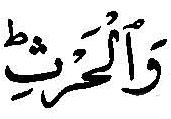 وَٱلْحَرْثِؕ